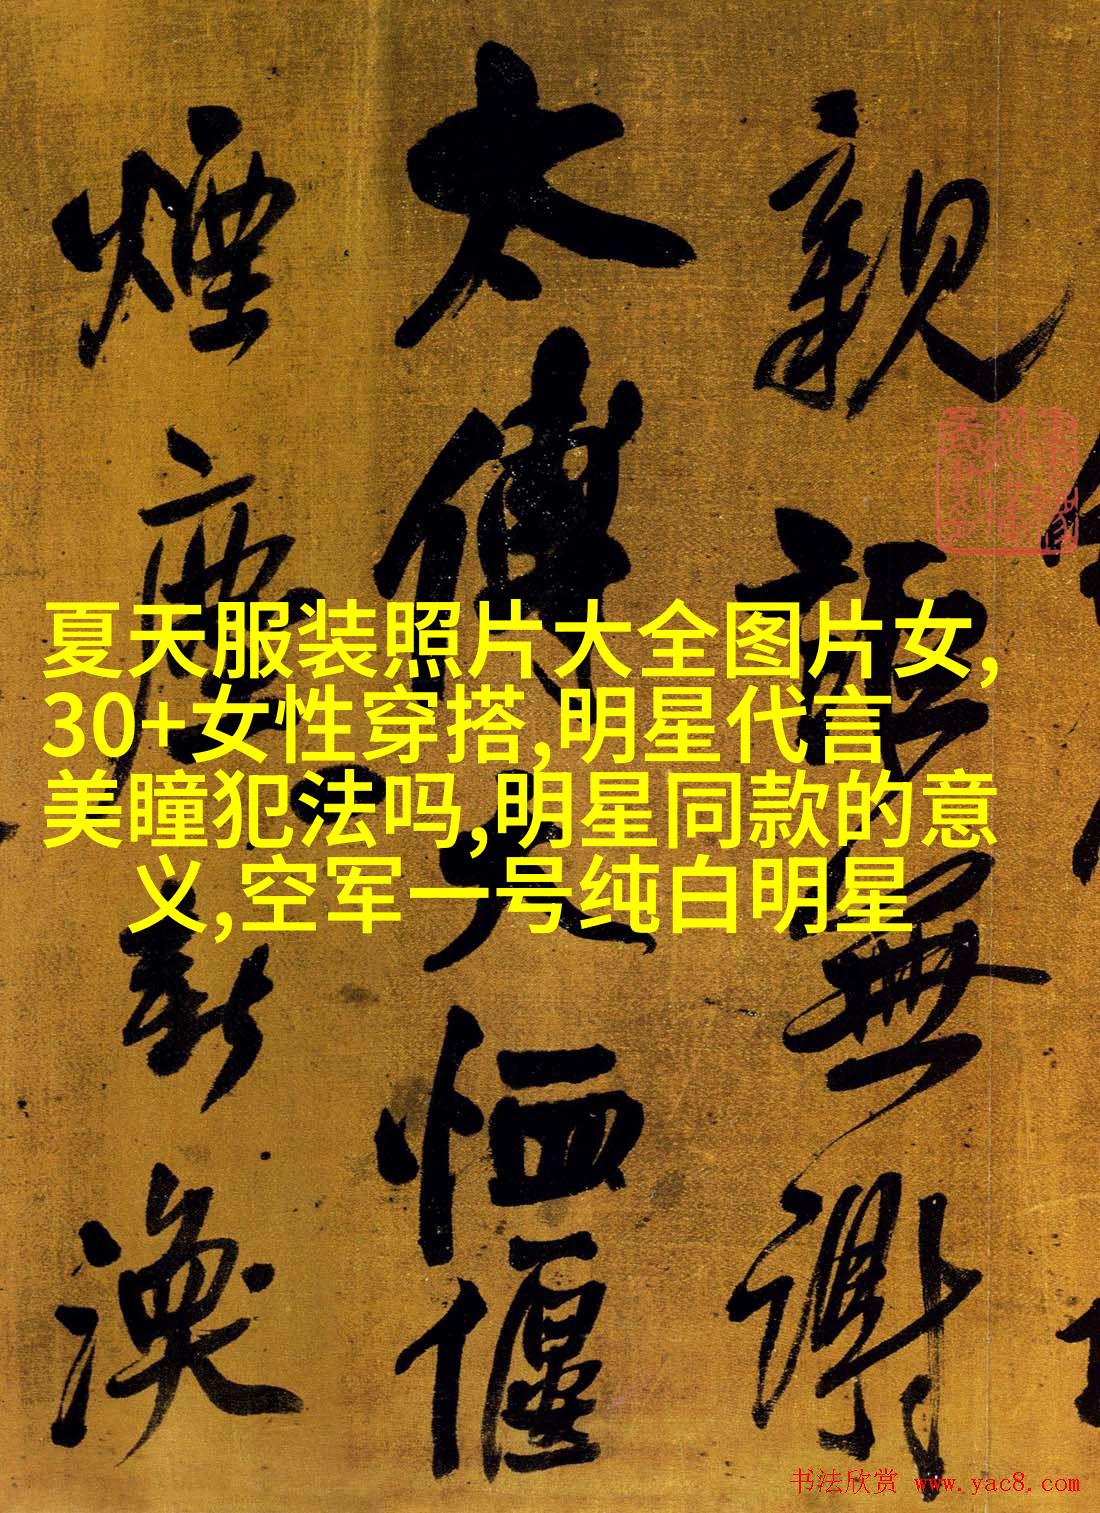 親詎無謝
太傅大恤偃
煙塵新渙
夏天服装照片大全图片女,
30+女性穿搭,明星代言
美瞳犯法吗,明星同款的意
义,空军一号纯白明星
书法欣赏 www.yac8.com